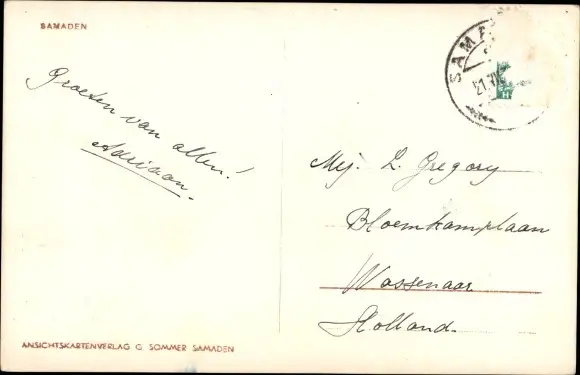 SAMADEN
Groeten van allen!
Adriaan.
SAMA
21.VII
H
Mej. L. Gregory
Bloemkamplaan
Wassenaar
Holland.
ANSICHTSKARTENVERLAG G. SOMMER SAMADEN